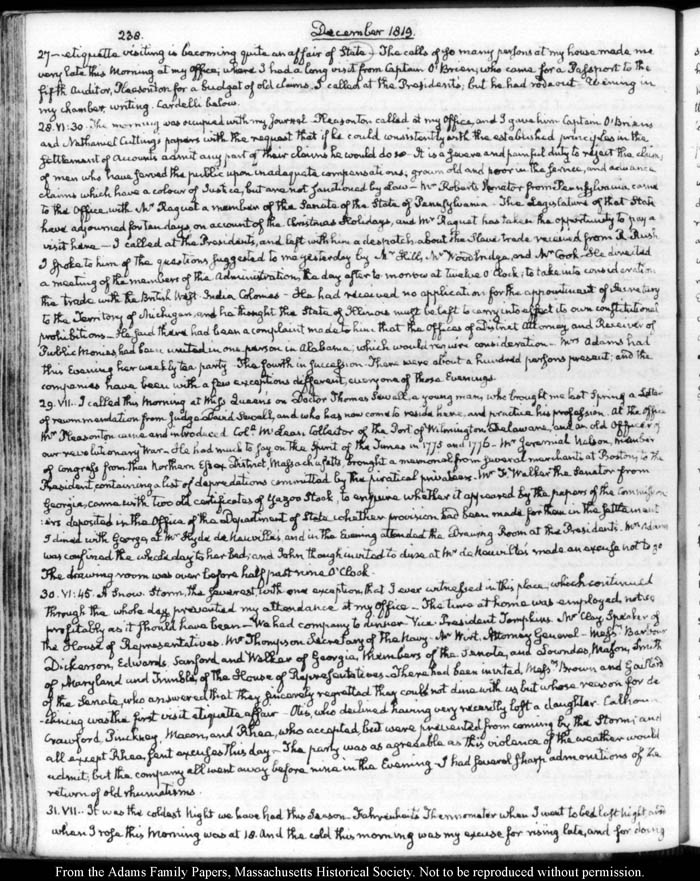 238. December 1819.
27 — etiquette visiting is becoming quite an affair of State — The calls of so many persons at my house made me
very late this Morning at my Office; where I had a long visit from Captain O'Brien, who came for a Passport to the
fifth Auditor, Pleasonton for a budget of old claims. I called at the President's, but he had rode out. Evening in
my chamber, writing. Cardelli below.
28. VI:30. The morning was occupied with my Journal. Pleasonton called at my office, and I gave him Captain O'Brien's
and Nathaniel Cutting's papers with the request that if he could consistently with the established principles in the
settlement of Accounts admit any part of their claims he would do so. It is a severe and painful duty to reject the claims
of men who have served the public upon inadequate compensations, grown old and poor in the service, and advance
claims which have a colour of Justice, but are not sanctioned by Law — Mr Roberts Senator from Pennsylvania came
to the Office with Mr Raguet a member of the Senate of the State of Pennsylvania — The Legislature of that State
have adjourned for ten days, on account of the Christmas Holidays, and Mr Raguet has taken the opportunity to pay a
visit here — I called at the President's, and left with him a despatch about the Slave trade received from R. Rush
I spoke to him of the questions, suggested to me yesterday by Mr Hill, Mr Woodbridge, and Mr Cook — He directed
a meeting of the members of the Administration, the day after to morrow at twelve O'Clock; to take into consideration
the trade with the British West-India Colonies — He had received no application for the appointment of Secretary
to the Territory of Michigan, and he thought the State of Illinois must be left to carry into effect its own constitutional
prohibitions — He said there had been a complaint made to him that the Offices of District Attorney, and Receiver of
Public Monies had been united in one person in Alabama, which would require consideration — Mrs Adams had
this Evening her weekly tea party. The fourth in succession. There were about a hundred persons present; and the
companies have been with a few exceptions different, every one of those Evenings.
29. VII. I called this Morning at Miss Queen's on Doctor Thomas Sewall, a young man, who brought me last Spring a Letter
of recommendation from Judge David Sewall, and who has now come to reside here, and practice his profession. At the Office
Mr Pleasonton came and introduced Coll. McLean Collector of the Port of Wilmington Delaware, and an old Officer of
our revolutionary War — He had much to say on the Spirit of the Times in 1775 and 1776 — Mr Jeremiah Nelson, member
of Congress from the northern Essex District, Massachusetts, brought a memorial from several merchants at Boston, to the
President, containing a list of depredations committed by the piratical privateers. Mr F. Walker the Senator from
Georgia, came with two old certificates of Yazoo Stock, to enquire whether it appeared by the papers of the Commission-
ers deposited in the Office of the Department of State whether provision had been made for them in the settlement
I dined with George, at Mr Hyde de Neuville's and in the Evening attended the Drawing Room at the President's. Mrs Adams
was confined the whole day to her bed; and John though invited to dine at Mr de Neuville's made an excuse not to go
The drawing room was over before half past nine O'Clock.
30. VI:45. A Snow-Storm, the severest, with one exception, that I ever witnessed in this place, which continued
through the whole day, prevented my attendance at my Office — The time at home was employed, not so
profitably as it should have been — We had company to dinner — Vice President Tompkins. Mr Clay, Speaker of
the House of Representatives. Mr Thompson Secretary of the Navy. Mr Wirt, Attorney General — Messrs Barbour
Dickerson, Edwards, Sanford, and Walker of Georgia, Members of the Senate, and Lowndes, Mason, Smith
of Maryland and Trimble, of the House of Representatives. There had been invited, Messrs Brown and Gaillard
of the Senate, who answered that they sincerely regretted they could not dine with us but whose reason for de
-clining was the first visit etiquette affair — Otis, who declined having very recently lost a daughter. Calhoun —
Crawford, Pinckney, Macon, and Rhea, who accepted, but were prevented from coming by the Storm; and
all except Rhea, sent excuses this day — The party was as agreeable as this violence of the weather would
admit; but the company all went away before nine in the Evening — I had several sharp admonitions of the
return of old rheumatisms.
31. VII. It was the coldest Night we have had this Season — Fahrenheit's Thermometer when I went to bed last night, and
when I rose this Morning was at 18. And the cold this morning was my excuse for rising late, and for doing
From the Adams Family Papers, Massachusetts Historical Society. Not to be reproduced without permission.